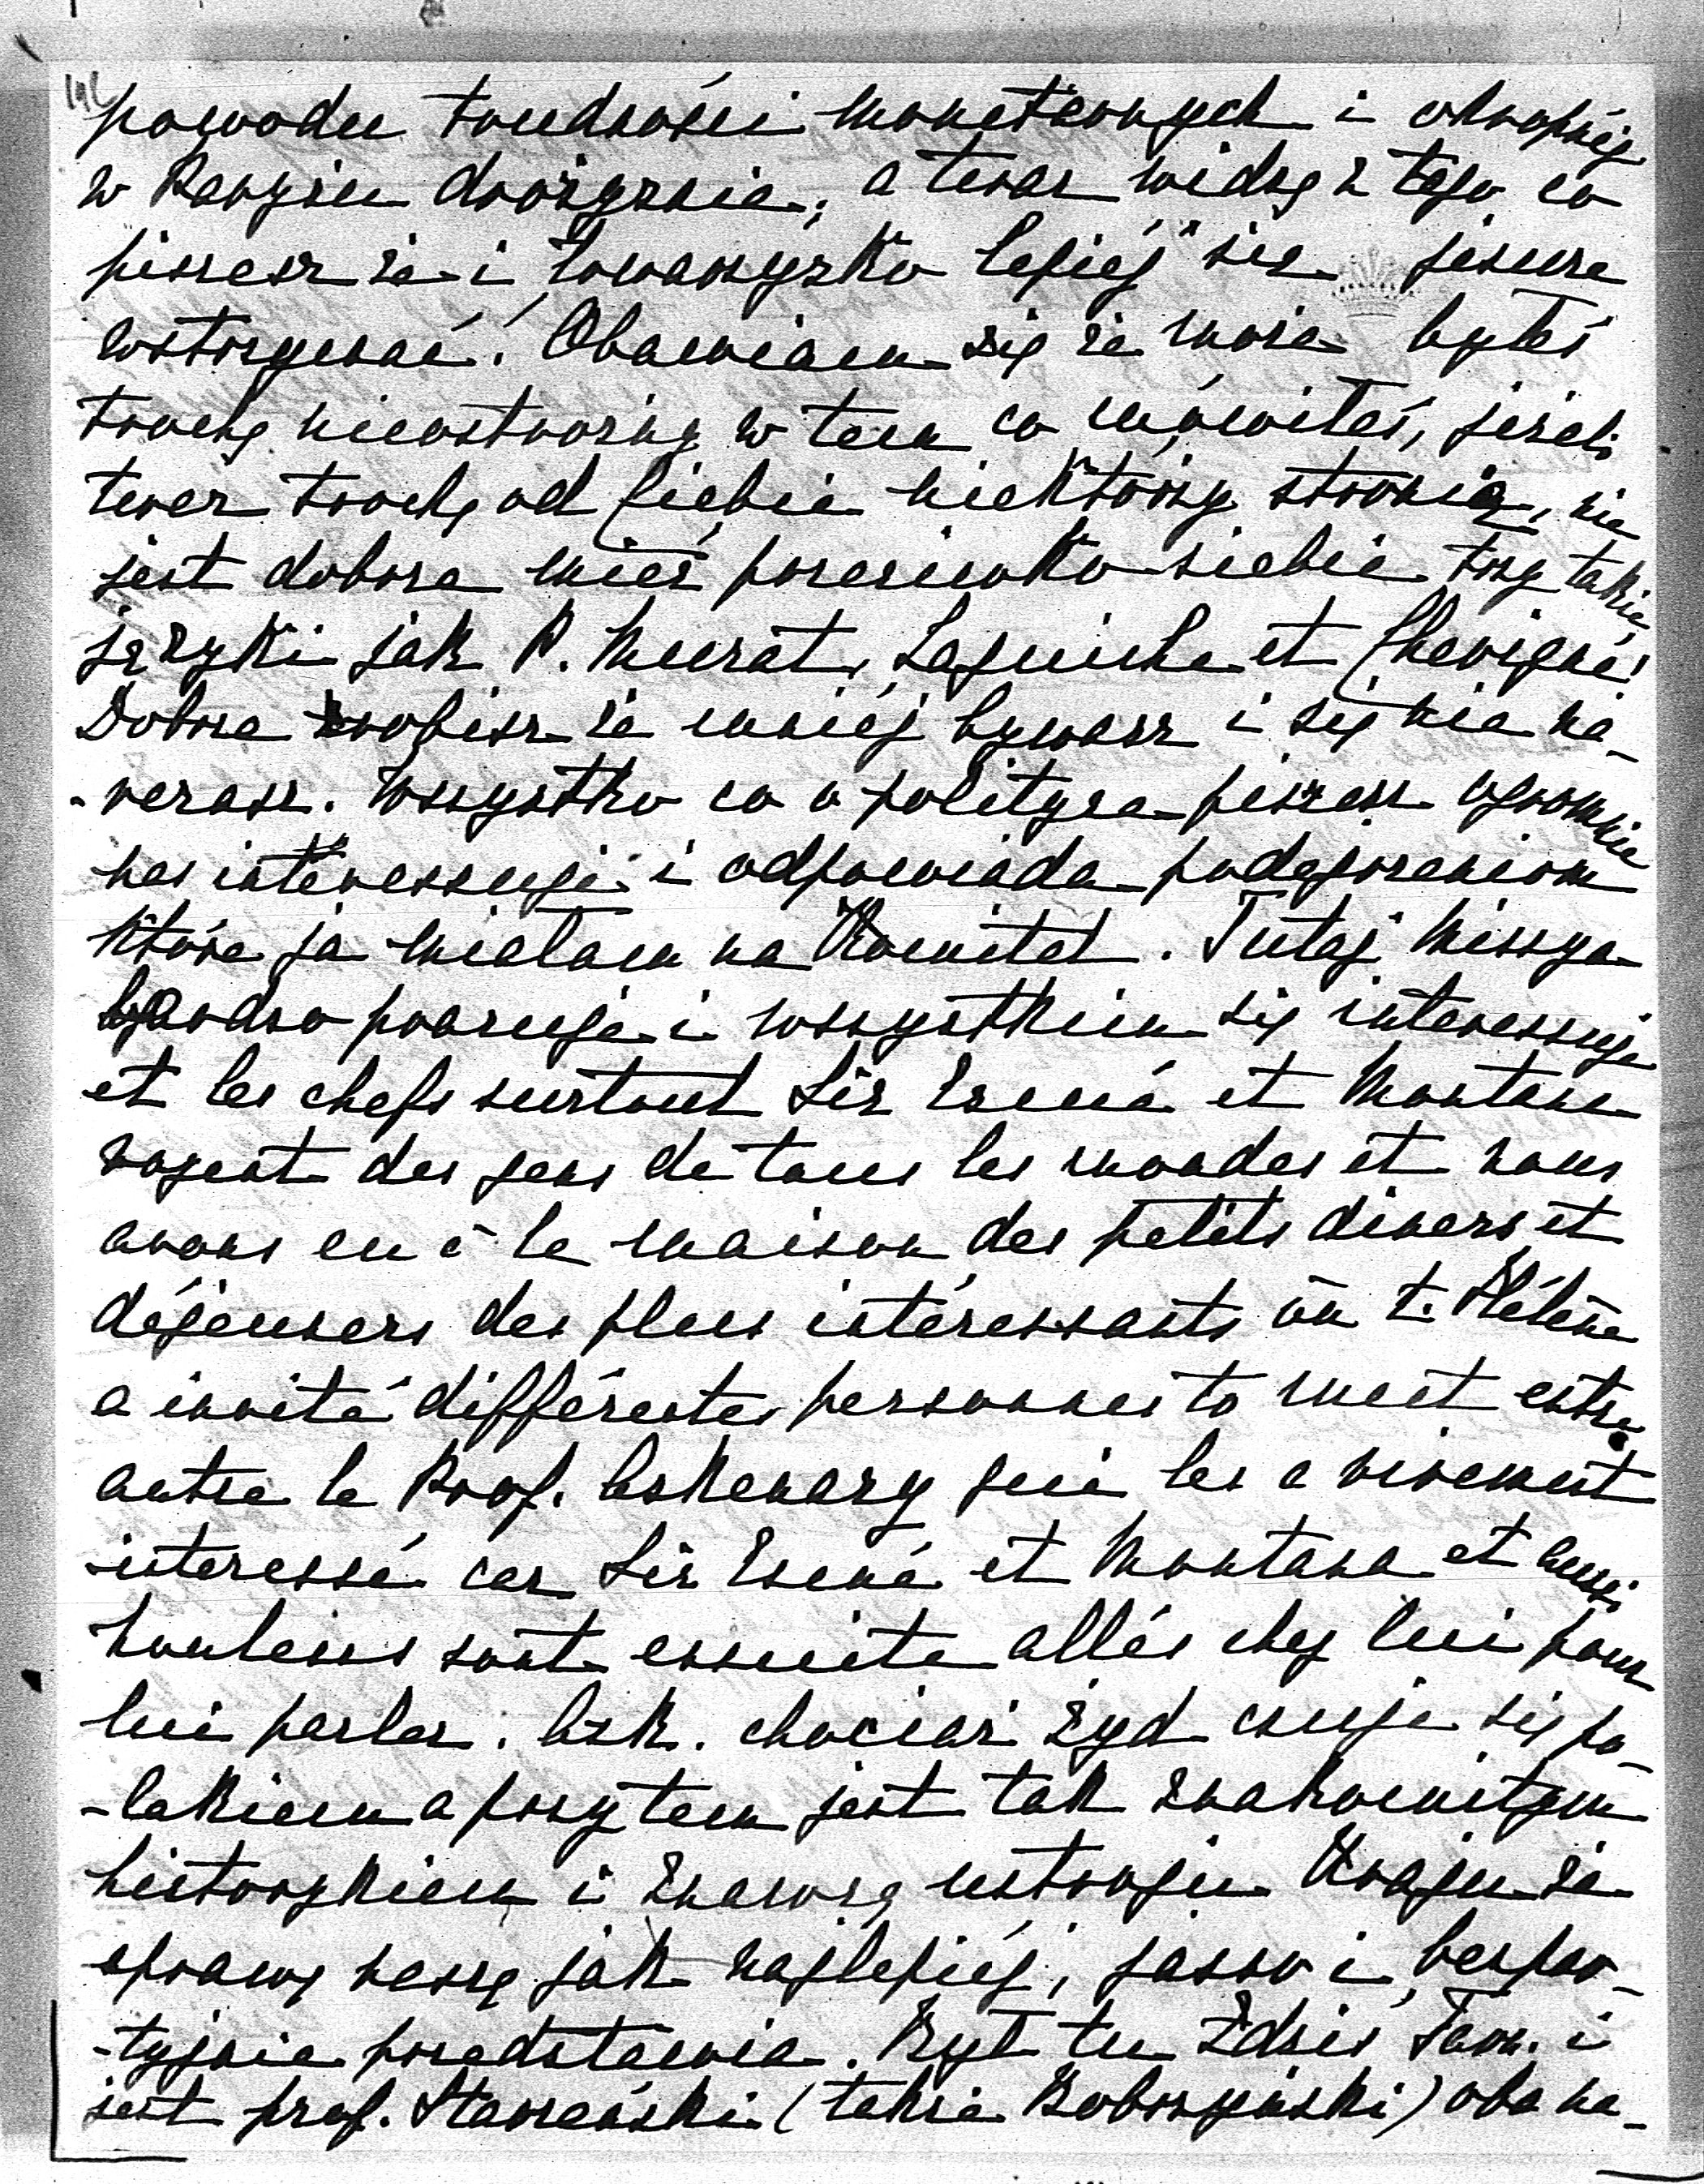 powodu trudności monetarnych i okropnéj
w Paryżu drożyznie, a teraz widzę z tego co
piszesz że i towarzysko lepiéj się jeszcze
wstrzymać. Obawiam się że może byłeś
trochę nieostrożny w tem co mówiłeś, jeżeli
teraz trochę od Ciebie niektórzy stronią, nie
jest dobrze mieć przeciwko siebie trzy takie
języki jak P. Murat, Laguiche et Chevigné!
Dobrze robisz że mniéj bywasz i się nie na-
-rażasz. Wszystko co o polityce piszesz ogromnie
nas interessuje i odpowiada podejrzeniom
które ja miałam na Komitet. Tutaj Missya
bardzo pracuje i wszystkiem się interessuje
et les chefs surtout Sir Esmé et Montana
voyent des gens de tous les mondes et nous
avons eu à la maison des petits diners et
déjeuners des plus intéressants où t. Hélène
a invité différentes personnes to meet entre
autre le Prof. Askenazy qui les a vivement
interessé car Sir Esmé et Montana et aussi
Noulens sont ensuite allés chez lui pour
lui parler. Ask. chociaż Żyd czuje się po-
-lakiem a przytem jest tak znakomitym
historykiem i znawcą ustroju Kraju że
sprawę naszą jak najlepiéj, jasno i bezpar-
-tyjnie przedstawia. Był tu Zdziś Tarn. i
jest prof. Starzeński (także Bobrzyński) oba na-